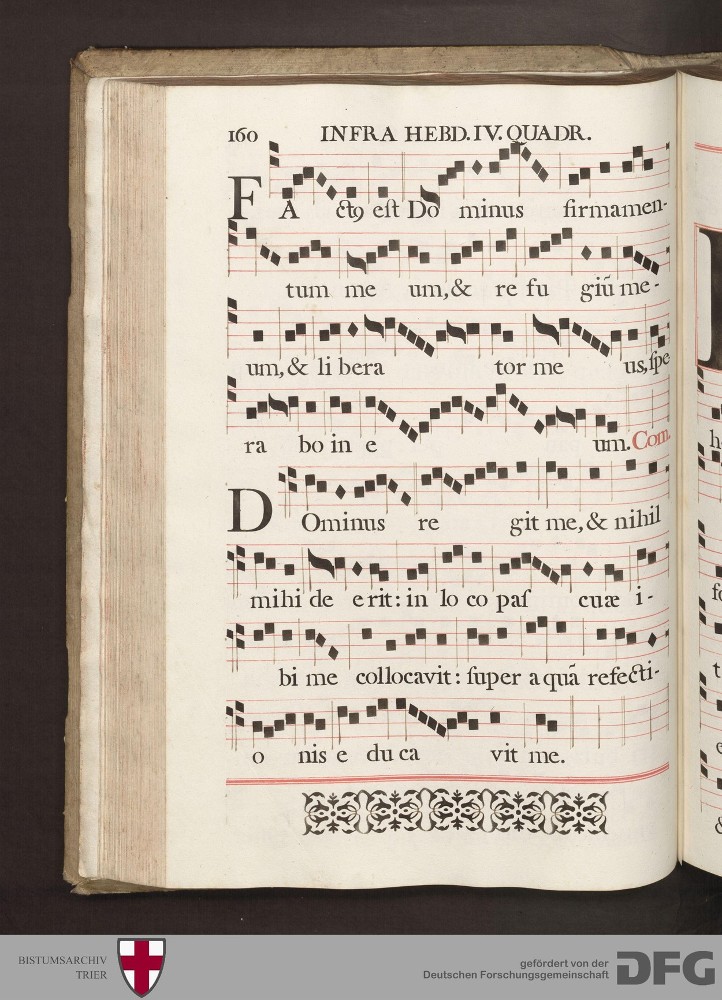 160 INFRA HEBD. IV. QUADR.
FActꝯ est Dominus firmamen-
tum meum, & refugiū me-
um, & liberator meus, spe
rabo in eum. Com.
DOminus reget me, & nihil
mihi deerit: in loco pascuæ i-
bi me collocavit: super aquā refecti-
onis educavit me.
BISTUMSARCHIV
TRIER
gefördert von der
Deutschen Forschungsgemeinschaft
DFG